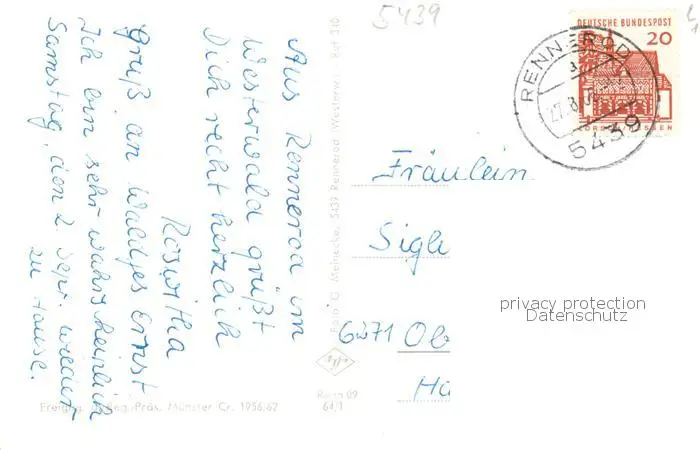 5439
Aus Rennerod im
Westerwald grüßt
Dich recht herzlich
Roswitha
Gruß an Waldtjes Ernst
Ich bin sehr wahrscheinlich
Samstag, den 2. Sept. wieder
zu Hause.
Foto C. Meinecke, 5439 Rennerod (Westerw.) Ruf 310
Freigeg. Reg. Präs. Münster Cr. 1956/62
Renn 09
64/1
DEUTSCHE BUNDESPOST
20
RENNEROD
a
5439
Fräulein
Sigl
6271 Ob
Ha
privacy protection
Datenschutz